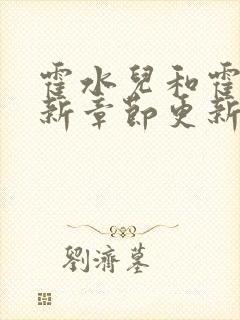 霍水兒和霍
新章節更新
劉濟墓